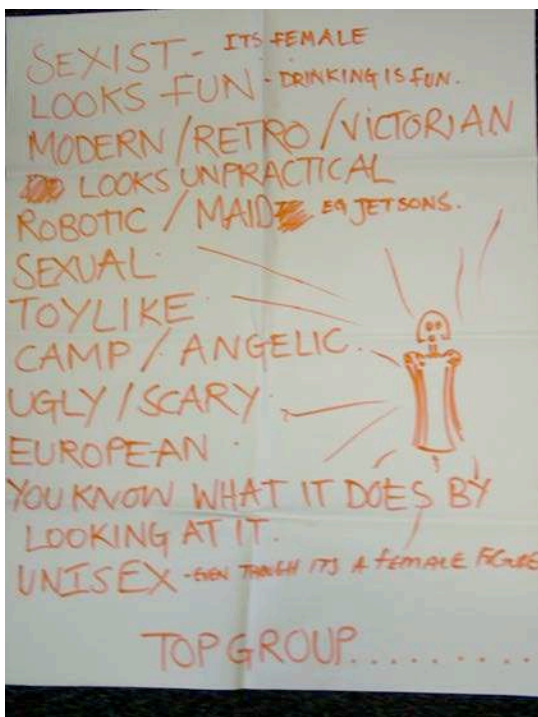 SEXIST - ITS FEMALE
LOOKS FUN - DRINKING IS FUN.
MODERN / RETRO / VICTORIAN
LOOKS UNPRACTICAL
ROBOTIC / MAID EG JETSONS.
SEXUAL
TOYLIKE
CAMP / ANGELIC.
UGLY / SCARY.
EUROPEAN
YOU KNOW WHAT IT DOES BY
LOOKING AT IT.
UNISEX - EVEN THOUGH ITS A FEMALE FIGURE
TOP GROUP.........